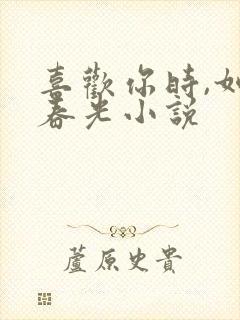 喜歡你時,如
春光小說
蘆原史貴